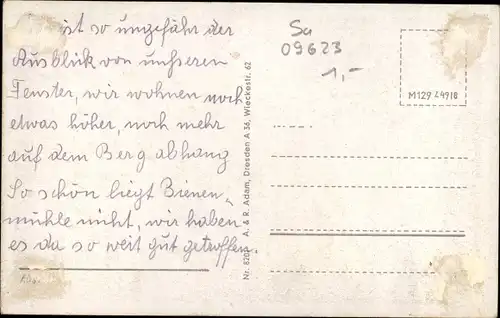 ist so ungefähr der
Ausblick von unhseren
Fenster, wir wohnen noch
etwas höher, noch mehr
auf dem Berg abhang
So schön liegt Bienen-
mühle nicht, wir haben
es da so weit gut getroffen.
A. & R. Adam, Dresden A 36, Wieckestr. 62
Sa
09623
1,-
M129 L4918